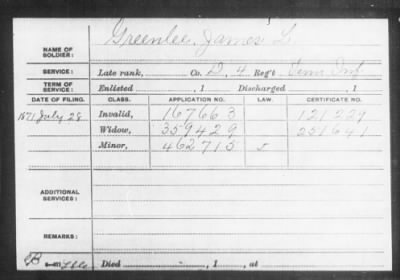 Greenlee, James L
NAME OF SOLDIER:
SERVICE: Late rank, Co. D, 4 Reg't Tenn Inf
TERM OF SERVICE: Enlisted , 1 Discharged , 1
DATE OF FILING. CLASS. APPLICATION NO. LAW. CERTIFICATE NO.
1871 July 28 Invalid, 167663 121229
Widow, 359429 251641
Minor, 462715
ADDITIONAL SERVICES:
REMARKS:
Died , 1 , at